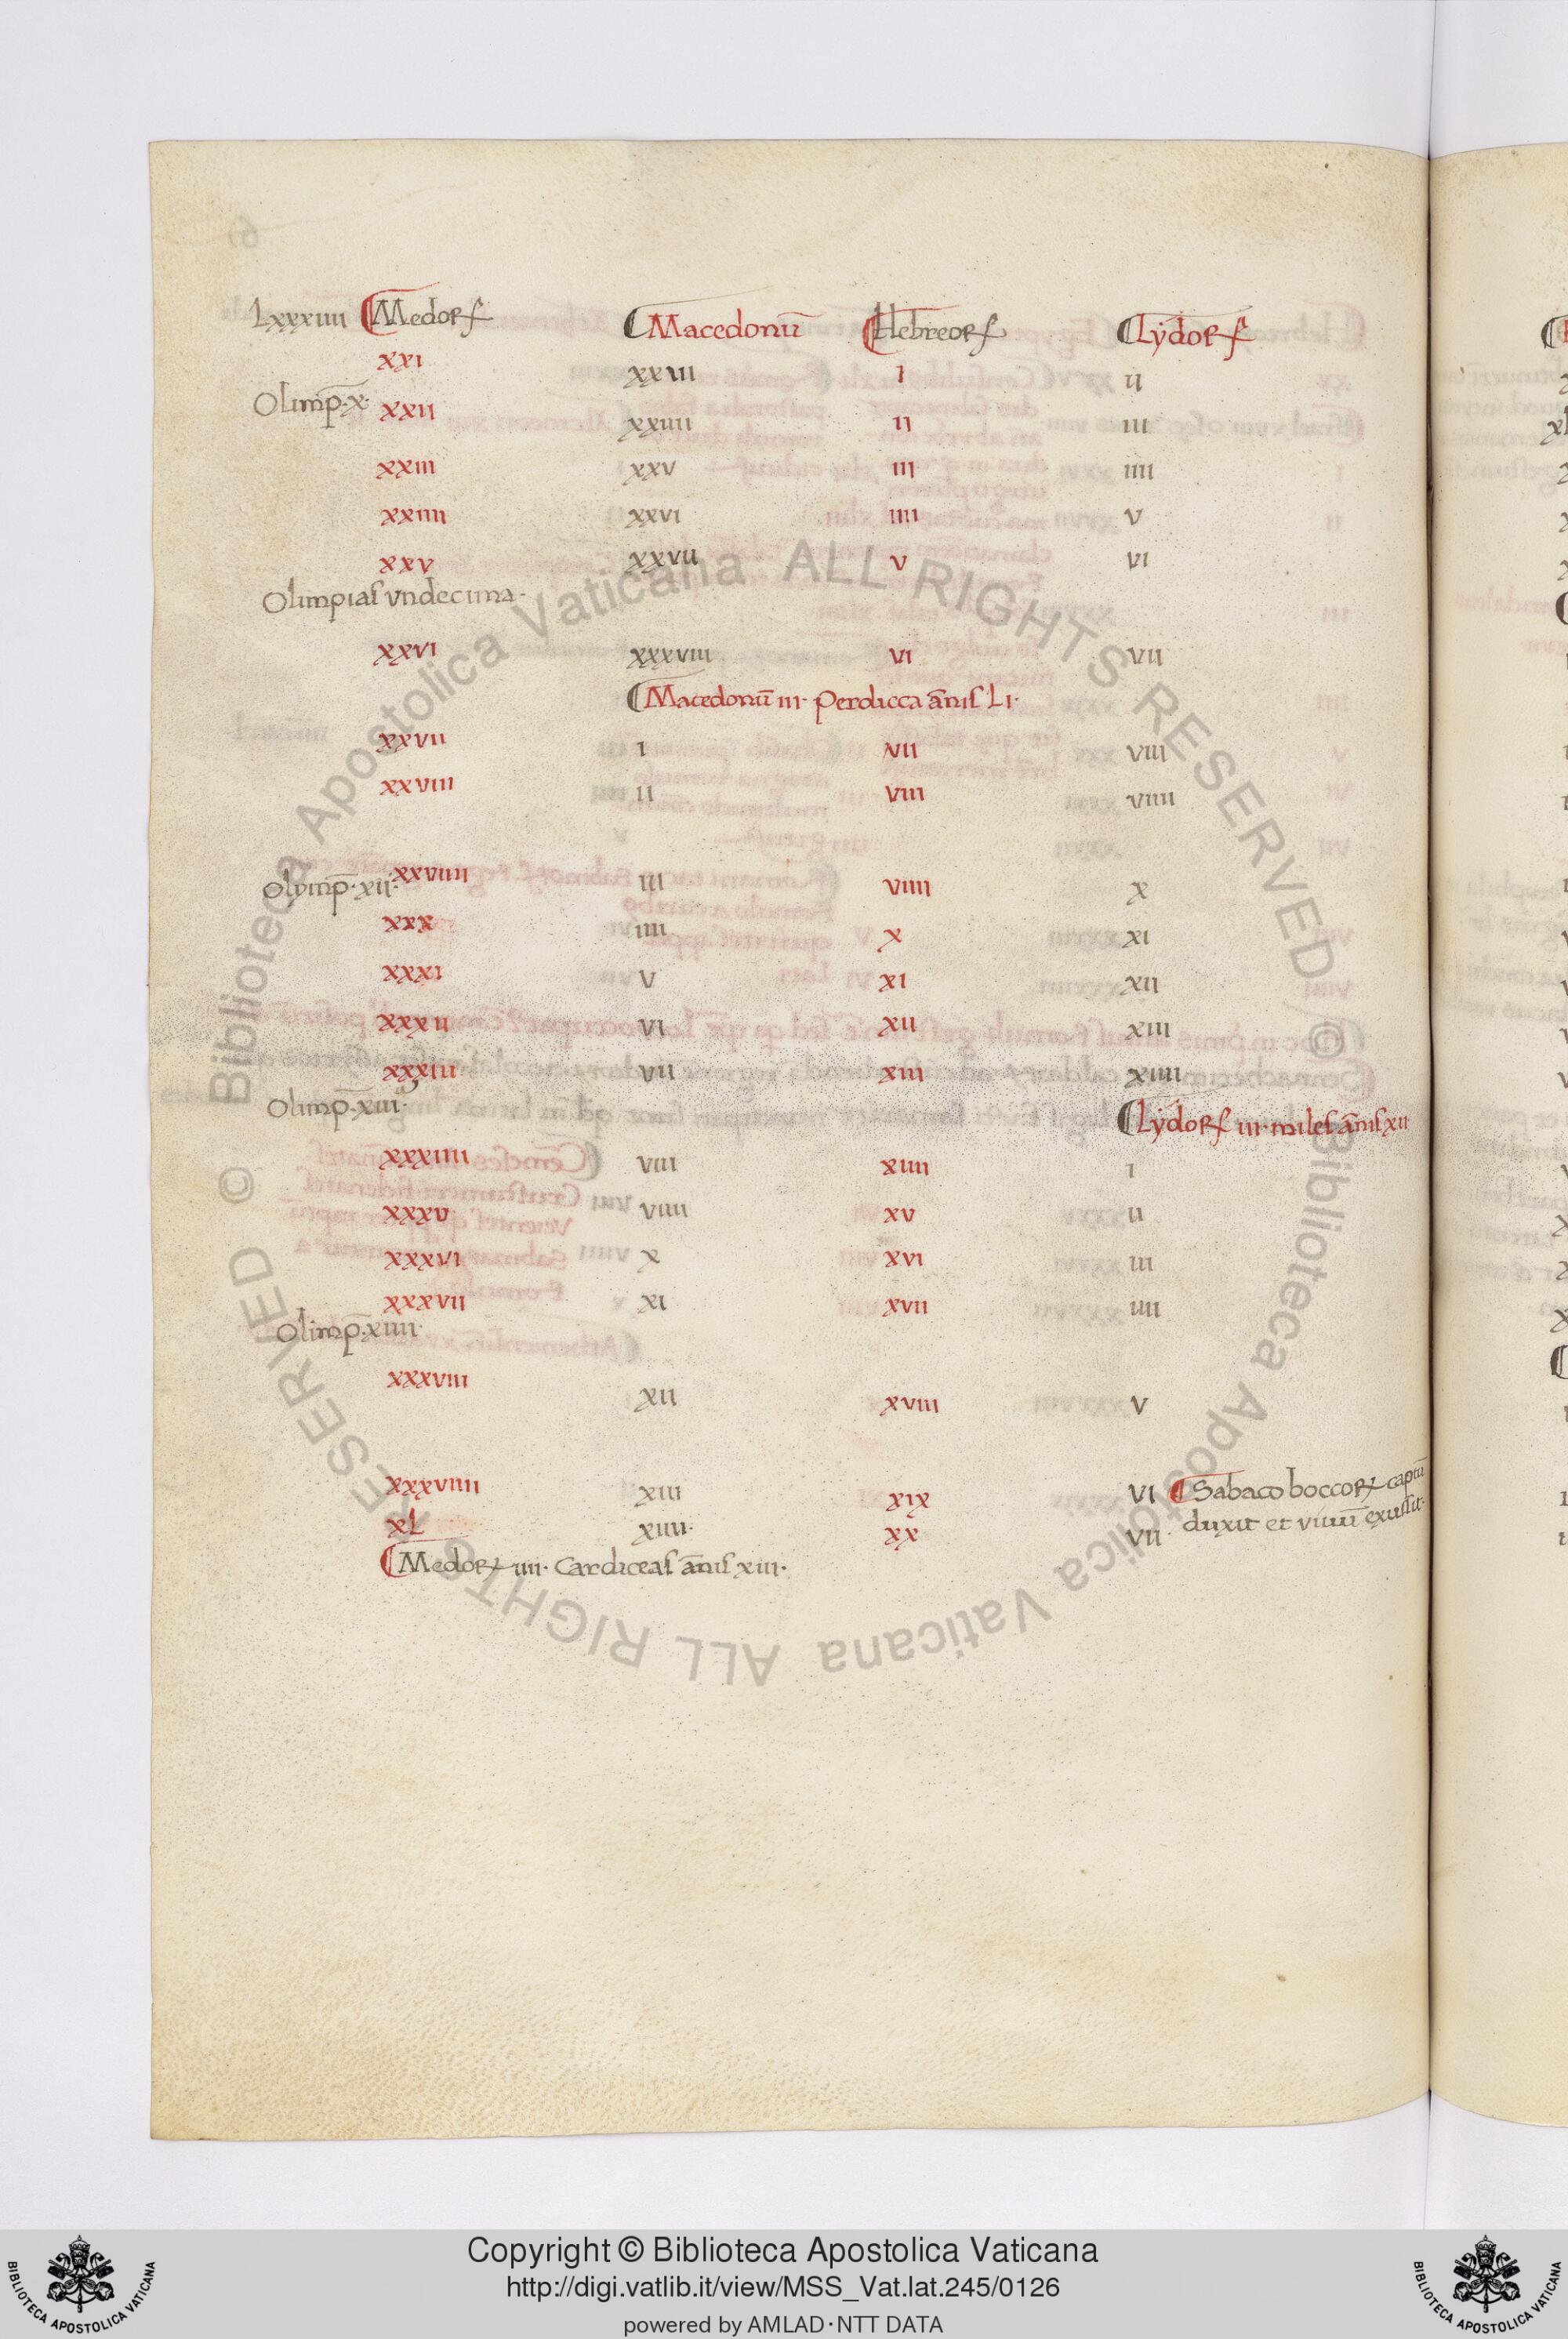 Lxxxiiii Medorſ Macedonū Hebreorſ Lydorſ
xxi xxiii i ii
Olimp̄·x· xxii xxiiii ii iii
xxiii xxv iii iiii
xxiiii xxvi iiii v
xxv xxvii v vi
Olimpiaſ vndecima·
xxvi xxxviii vi vii
Macedonū iii· perdicca ān̄iſ Li·
xxvii i vii viii
xxviii ii viii viiii
Olymp̄·xii· xxviiii iii viiii x
xxx iiii x xi
xxxi v xi xii
xxxii vi xii xiii
xxxiii vii xiii xiiii
Olimp̄·xiii· Lydorſ iii· mileſ ān̄iſ xii
xxxiiii viii xiiii i
xxxv viiii xv ii
xxxvi x xvi iii
xxxvii xi xvii iiii
Olimp̄·xiiii·
xxxviii xii xviii v
xxxviiii xiii xix vi Sabaco boccoꝝ captū
xL xiiii· xx vii· duxit et viuū exuſſit·
Medoꝝ iiii· Cardiceaſ ān̄iſ xiii·
© Biblioteca Apostolica Vaticana ALL RIGHTS RESERVED © Biblioteca Apostolica Vaticana ALL RIGHTS RESERVED
Copyright © Biblioteca Apostolica Vaticana
http://digi.vatlib.it/view/MSS_Vat.lat.245/0126
powered by AMLAD·NTT DATA
BIBLIOTECA APOSTOLICA VATICANA
BIBLIOTECA APOSTOLICA VATICANA